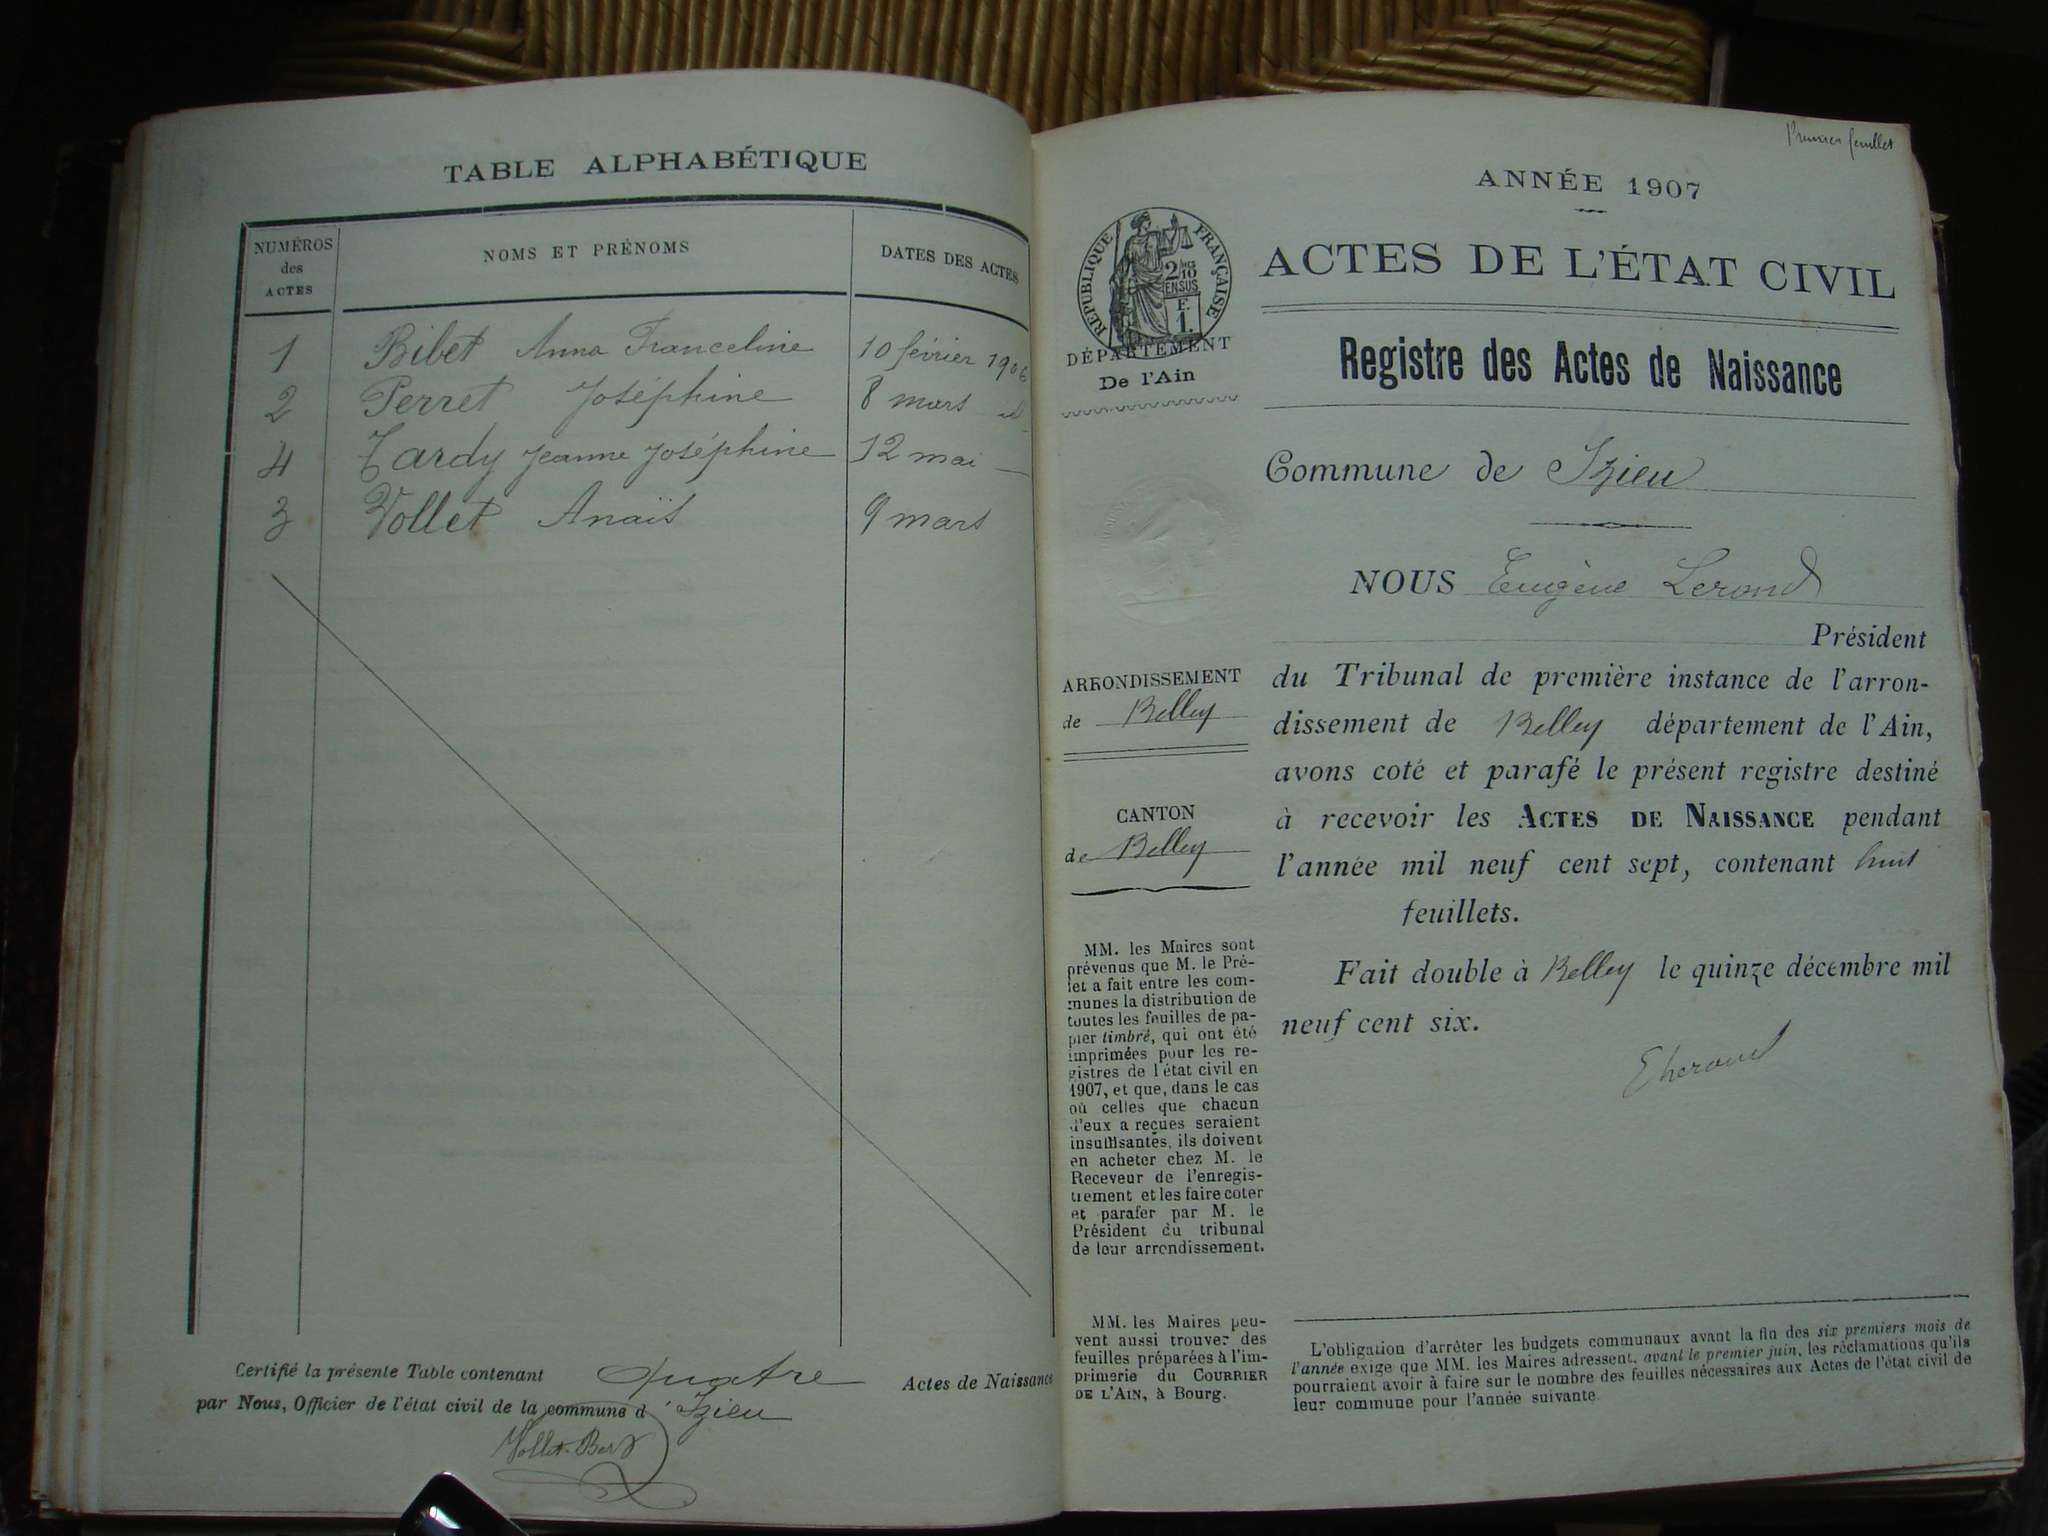 TABLE ALPHABÉTIQUE
NUMÉROS
des
ACTES
NOMS ET PRÉNOMS
DATES DES ACTES
1 Bibet Anna Franceline 10 février 1906
2 Perret Joséphine 8 mars id
4 Tardy Jeanne Joséphine 12 mai —
3 Vollet Anaïs 9 mars
Certifié la présente Table contenant quatre Actes de Naissance
par Nous, Officier de l'état civil de la commune d'Izieu
Premier feuillet
ANNÉE 1907
RÉPUBLIQUE FRANÇAISE
2 10
EN SUS
F.
1.
DÉPARTEMENT
De l'Ain
ACTES DE L'ÉTAT CIVIL
Registre des Actes de Naissance
Commune de Izieu
NOUS Eugène Lerond
Président
du Tribunal de première instance de l'arron-
dissement de Belley département de l'Ain,
avons coté et parafé le présent registre destiné
à recevoir les ACTES DE NAISSANCE pendant
l'année mil neuf cent sept, contenant huit
feuillets.
Fait double à Belley le quinze décembre mil
neuf cent six.
ARRONDISSEMENT
de Belley
CANTON
de Belley
MM. les Maires sont
prévenus que M. le Pré-
fet a fait entre les com-
munes la distribution de
toutes les feuilles de pa-
pier timbré, qui ont été
imprimées pour les re-
gistres de l'état civil en
1907, et que, dans le cas
où celles que chacun
d'eux a reçues seraient
insuffisantes, ils doivent
en acheter chez M. le
Receveur de l'enregis-
trement et les faire coter
et parafer par M. le
Président du tribunal
de leur arrondissement.
MM. les Maires peu-
vent aussi trouver des
feuilles préparées à l'im-
primerie du COURRIER
DE L'AIN, à Bourg.
L'obligation d'arrêter les budgets communaux avant la fin des six premiers mois de
l'année exige que MM. les Maires adressent, avant le premier juin, les réclamations qu'ils
pourraient avoir à faire sur le nombre des feuilles nécessaires aux Actes de l'état civil de
leur commune pour l'année suivante